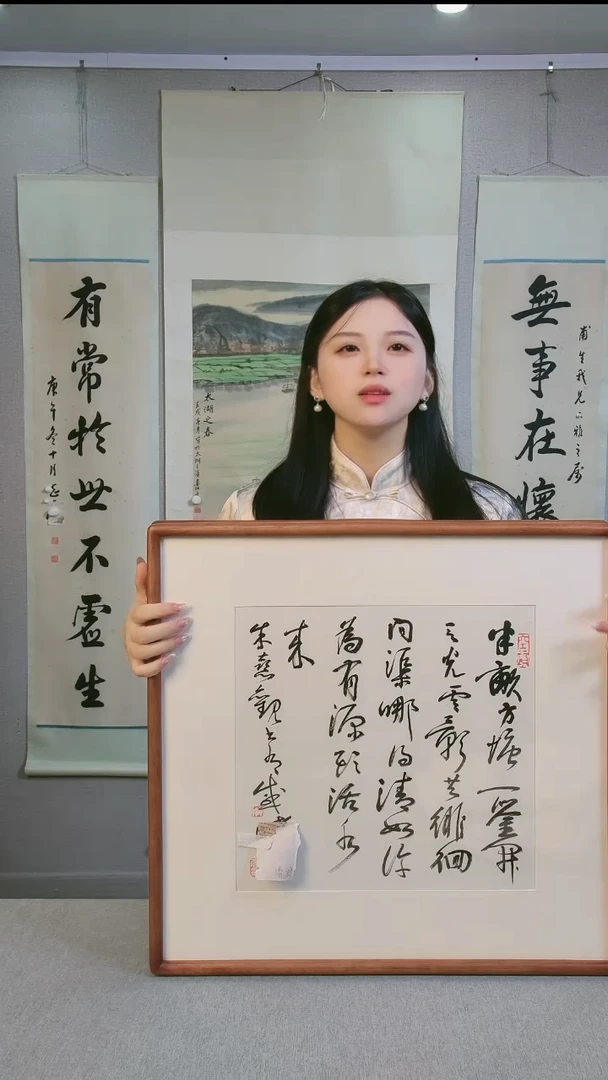 無事在懷
太湖之春
有常於世不虛生
庚午冬十月
半畝方塘一鑒開
天光雲影共徘徊
問渠哪得清如許
為有源頭活水
來
朱熹觀書有感